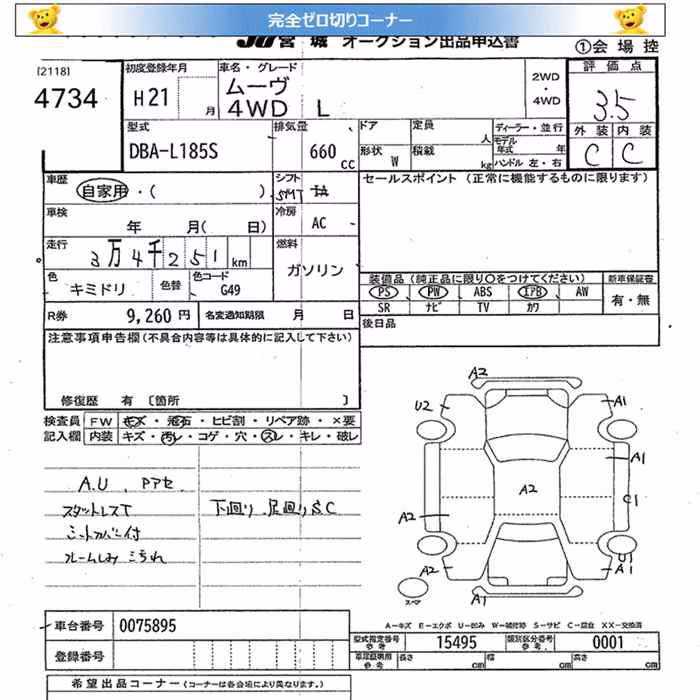 完全ゼロ切りコーナー
JU宮城 オークション出品申込書 ①会場控
[2118]
4734
初度登録年月 H21 月
車名・グレード
ムーヴ
4WD L
2WD
・
4WD
評価点
3.5
外装 内装
C C
型式
DBA-L185S
排気量
660 cc
ドア 定員 人
形状 W 積載 kg
ディーラー・並行
モデル年式 年
ハンドル 左・右
車歴 自家用・( )
シフト 5MT
セールスポイント (正常に機能するものに限ります)
車検 年 月( 日)
冷房 AC
走行 3万4千251km
燃料 ガソリン
色 キミドリ 色替 色コード G49
装備品(純正品に限り〇をつけてください) 新車保証書
PS PW ABS エアB AW 有・無
SR ナビ TV カワ
R券 9,260円 名変通知期限 月 日
後日品
注意事項申告欄(不具合内容等は具体的に記入して下さい)
修復歴 有〔箇所 〕
検査員 FW キズ・飛石・ヒビ割・リペア跡・×要
記入欄 内装 キズ・汚レ・コゲ・穴・スレ・キレ・破レ
A.U、Pアセ
スタットレスT 下回り、足回りS.C
シートカバー付
A2
U2 A1
A1
A2
A2 C1
U1
A2 A1
A1
スペア
A-キズ E-エクボ U-凹み W-補修跡 S-サビ C-腐食 XX-交換済
車台番号 0075895
型式指定番号 参考 15495 類別区分番号 参考 0001
登録番号
車庫証明用 参考 長さ cm 幅 cm 高さ cm
希望出品コーナー(コーナーは各会場により異なります。)